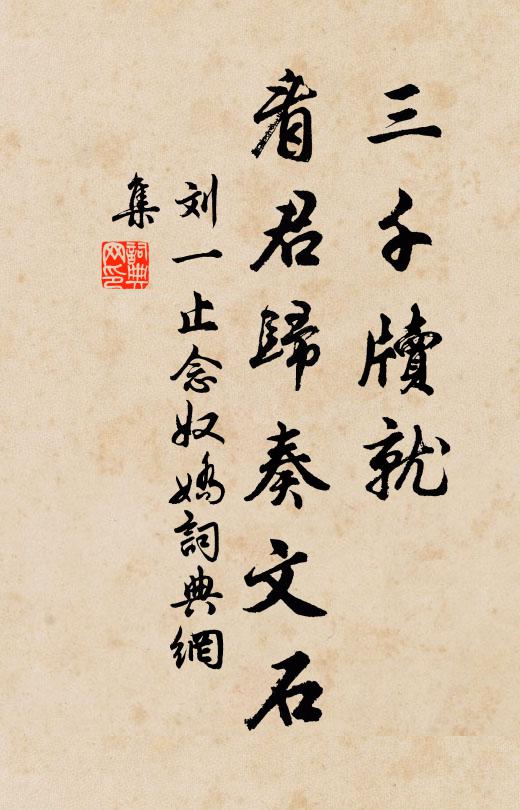 三千牘就
看君歸奏文石
刘一止念奴嬌詞典網
集
詞典
网印